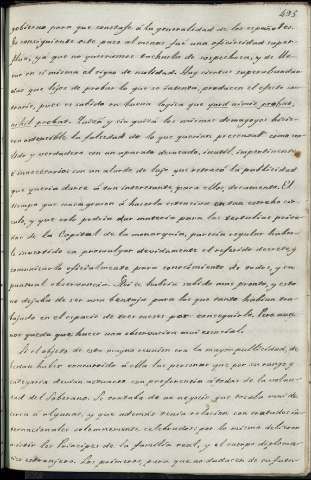 495
gobierno para que constase á la generalidad de los españoles.
Por consiguiente este paso al menos fué una oficiosidad super-
flua, ya que no queramos tacharla de sospechosa, y de lle-
var en sí misma el signo de nulidad. Hay ciertas superabundan-
cias que lejos de probar lo que se intenta, producen el efecto con-
trario, pues es sabido en buena lógica que quod nimis probat,
nihil probat. Quizá y sin quizá los mismos demagogos hicie-
ron ostensible la falsedad de lo que querían presentar como cier-
to y verdadero con un aparato inútil, impertinente
é innecesario con un alarde de lujo que retrajo la publicidad
que querían darse á tan interesante, para ellos, documento. El
tiempo que malgastaron á hacerla extensiva en tan estrecho cír-
culo, y que solo podía dar materia para las tertulias priva-
das de la Capital de la monarquía, parecía regular haber-
lo invertido en promulgar debidamente el referido decreto, y
comunicarlo oficialmente para conocimiento de todos, y su
puntual observancia. Así se habría sabido mas pronto, y esto
no dejaba de ser una ventaja para los que tanto habían tra-
bajado en el espacio de tres meses por conseguirlo. Pero aun
nos queda que hacer una observacion mui esencial.
Si el objeto de esta magna reunion era la mayor publicidad, de-
bieron haber concurrido á ella las personas que por su rango y
categoría debían actuarse con preferencia á todas de la volun-
tad del Soberano. Se trataba de un negocio que tocaba mui de
cerca á algunas, y que además tenía relacion con tratados in-
ternacionales solemnemente celebrados: por lo mismo debieron
asistir los Príncipes de la familia real, y el cuerpo diplomá-
tico extranjero. Los primeros, para que no dudasen de su fuen-